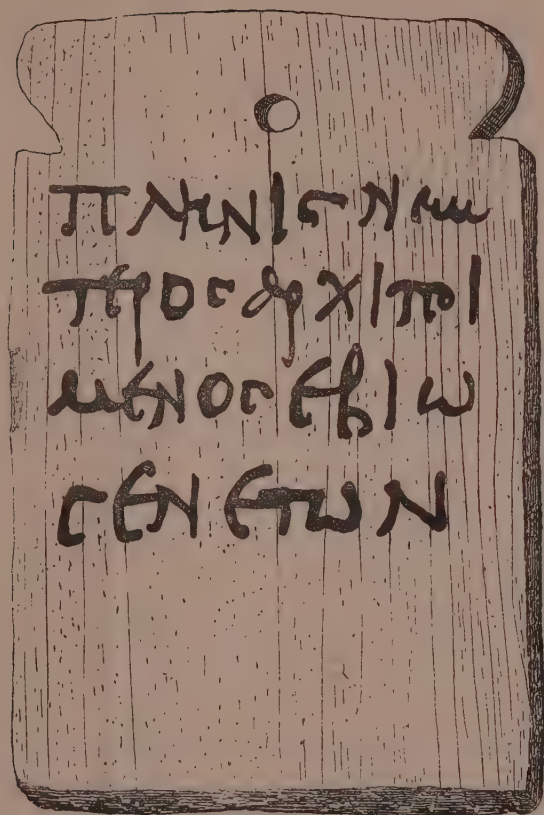 πληνιϲ νεω
τεροϲ αρχιποι
μενοϲ εβιω
ϲεν ετων